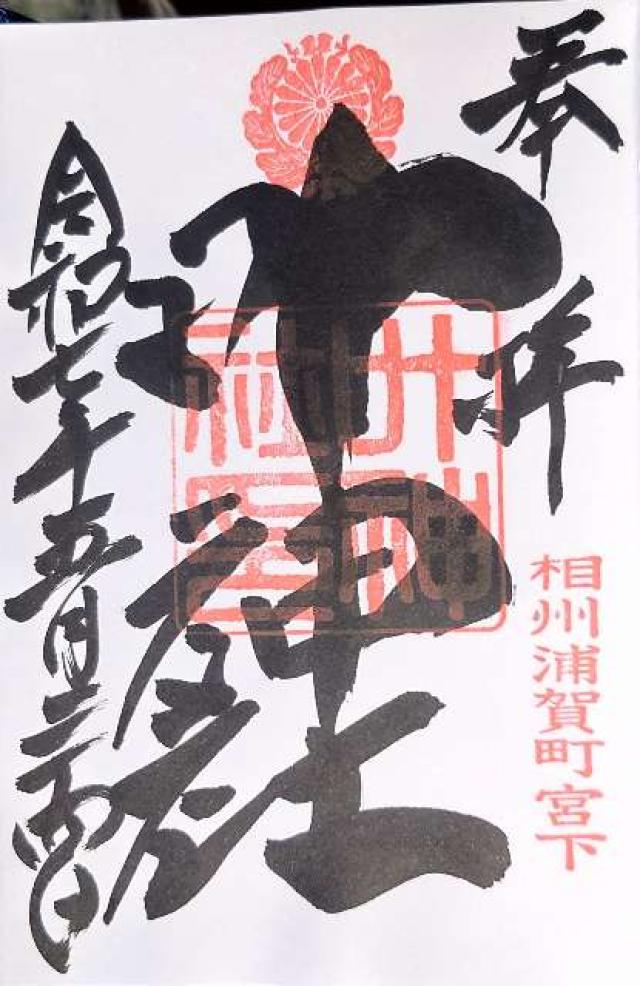 奉拝
相州浦賀町宮下
叶神社
叶神社印
令和七年五月二十四日